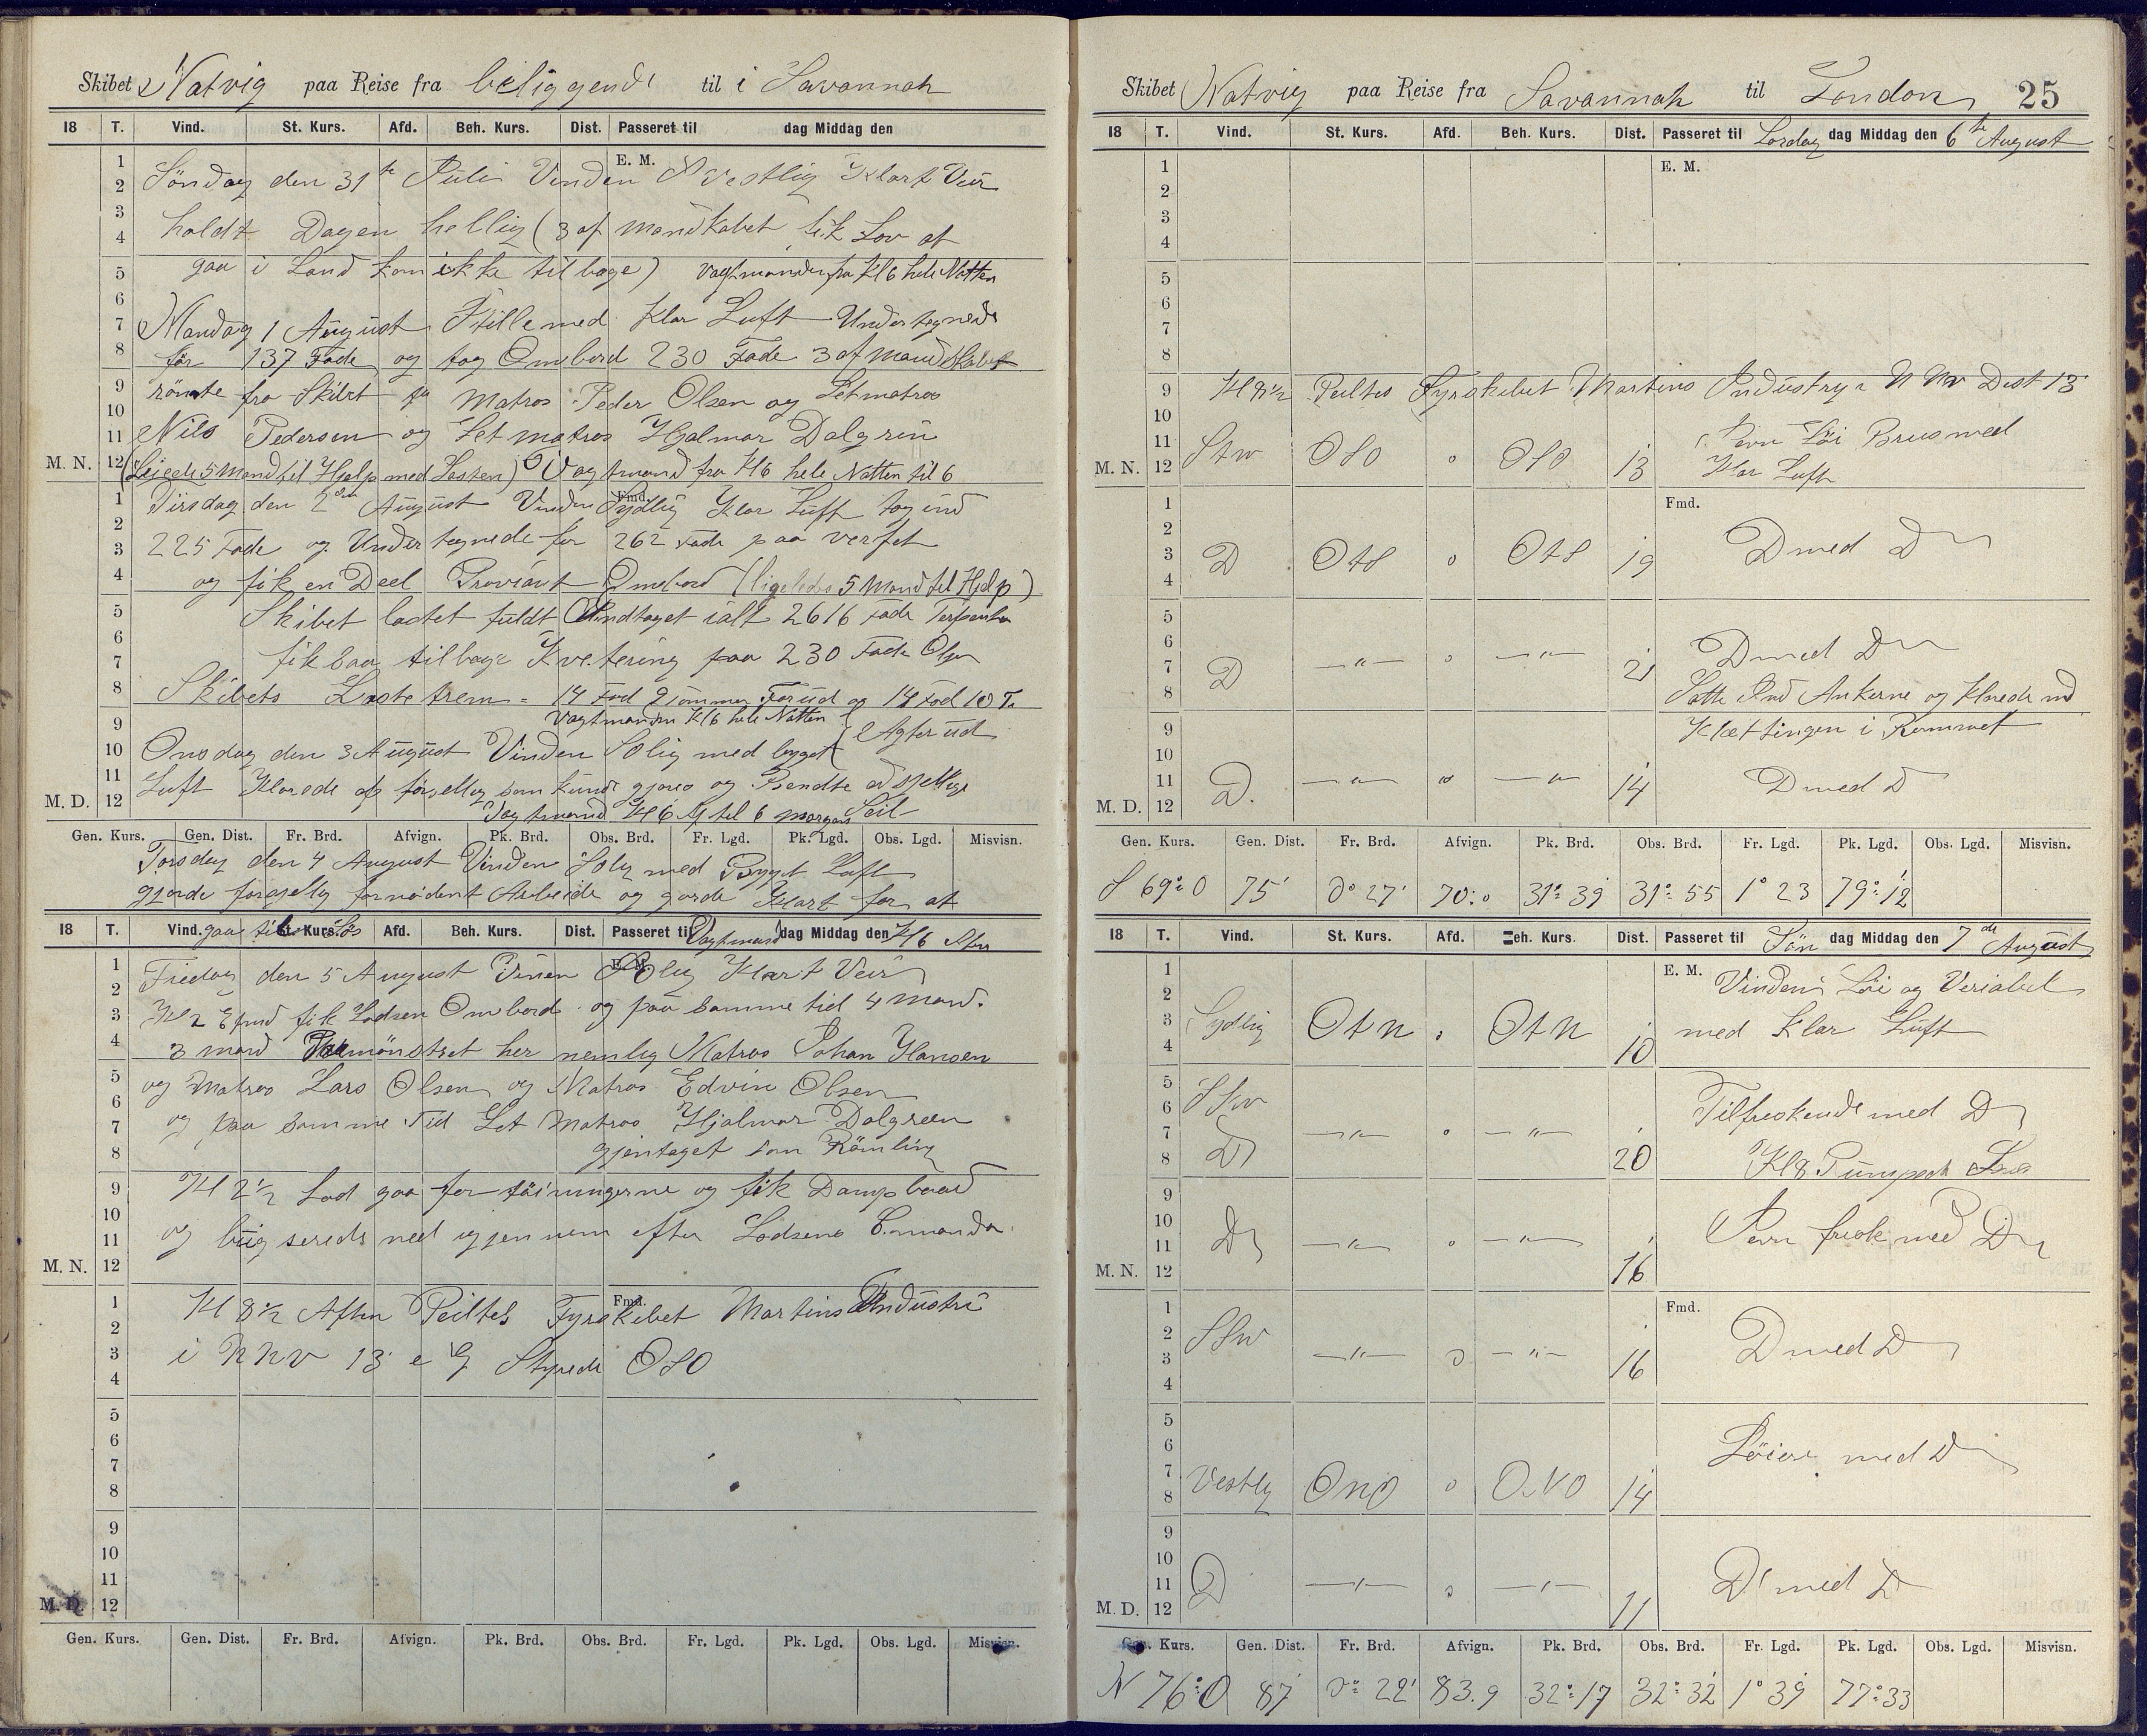 Skibet Natvig paa Reise fra beliggende til i Savannah
18 T. Vind. St. Kurs. Afd. Beh. Kurs. Dist. Passeret til dag Middag den
E. M.
Söndag den 31te Juli Vinden Vestlig Klart Veir
holdt Dagen hellig (3 af mandskabet fik Lov at
gaa i Land kom ikke tilbage) Vagtmanden fra Kl 6 hele Natten
Mandag 1 August Stille med Klar Luft Undertegnede
for 137 Fade og tog Ombord 230 Fade 3 af mandskabet
römte fra Skibet Matros Peder Olsen og Letmatros
Nils Pedersen og Letmatros Hjalmar Dalgren
M. N. (Leiede 5 Mand til Hjelp med Lasten) Vagtmand fra Kl 6 hele Natten til 6
Fmd.
Tirsdag den 2den August Vinden Sydlig Klar Luft tog ind
225 Fade og Undertegnede for 262 Fade paa verfet
og fik en Deel Proviant Ombord (ligeledes 5 Mand til Hjelp)
Skibet ladtet fuldt Indtaget ialt 2616 Fade Terpentin
fik saa tilbage Kvetering paa 230 Fade
Skibets = 14 Fod 9 tommer Forud og 14 Fod 10 T
Vagtmanden Kl 6 hele Natten Agterud
Onsdag den 3 August Vinden Solig med bygget
Luft Klarede op forsjellig som kunde gjöres og Bendte
M. D. Vagtmand Kl 6 til 6 morgen Seil
Gen. Kurs. Gen. Dist. Fr. Brd. Afvign. Pk. Brd. Obs. Brd. Fr. Lgd. Pk. Lgd. Obs. Lgd. Misvisn.
Torsdag den 4 August Vinden Solig med Bygget Luft
gjorde forsjellig fornödent Arbeide og gjorde Klart for at
gaa til Söes Vagtmand Kl 6
18 T. Vind. St. Kurs. Afd. Beh. Kurs. Dist. Passeret til dag Middag den
E. M.
Fredag den 5 August Vinen Solig Klart Veir
Kl 2 fik Lodsen Ombord og paa samme tid 4 Mand.
3 mand Paamönstret her nemlig Matros Johan Hansen
og Matros Lars Olsen og Matros Edvin Olsen
og paa samme Tid Let Matros Hjalmar Dalgreen
gjentaget som Römling
Kl 2½ Lod gaa for töiningerne og fik Dampbaad
og bugserede ned igjennem efter Lodsens
M. N.
Fmd.
Kl 8½ Aften Peiltes Fyrskibet Martins Industri
i NNV 13' Styrede OSO
M. D.
Gen. Kurs. Gen. Dist. Fr. Brd. Afvign. Pk. Brd. Obs. Brd. Fr. Lgd. Pk. Lgd. Obs. Lgd. Misvisn.
Skibet Natvig paa Reise fra Savannah til London 25
18 T. Vind. St. Kurs. Afd. Beh. Kurs. Dist. Passeret til Lördag dag Middag den 6te August
E. M.
Kl 8½ Peiltes Fyrskibet Martins Industry NNW Dist 13'
M. N. OSO 0 OSO 13 Jevn Löi Brus med
Klar Luft
Fmd.
D OtS 0 OtS 19 D med D
D —"— 0 —"— 21 D med D
Satte Ind Ankerne og ned
Kjettingen i Rummet
M. D. D. —"— 0 —"— 14 D med D
Gen. Kurs. Gen. Dist. Fr. Brd. Afvign. Pk. Brd. Obs. Brd. Fr. Lgd. Pk. Lgd. Obs. Lgd. Misvisn.
S 69° O 75' 0° 27' 70.0 31° 39' 31° 55 1° 23 79° 12
18 T. Vind. St. Kurs. Afd. Beh. Kurs. Dist. Passeret til Sön dag Middag den 7de August
E. M.
Vinden Löi og Veriabel
Sydlig OtN OtN 10 med Klar Luft
SSW
D —"— 0 —"— 20 Tilfriskende med D
Kl 8 Pumpedt Læns
M. N. D —"— 0 —"— 16 Jevn frisk med D
Fmd.
SSW —"— 0 —"— 16 D med D
Vestlig ONO 0 ONO 14 Löiere med D
M. D. D —"— 0 —"— 11 D med D
Gen. Kurs. Gen. Dist. Fr. Brd. Afvign. Pk. Brd. Obs. Brd. Fr. Lgd. Pk. Lgd. Obs. Lgd. Misvisn.
N 76° O 87' 0° 22' 83.9 32° 17 32° 32' 1° 39' 77° 33